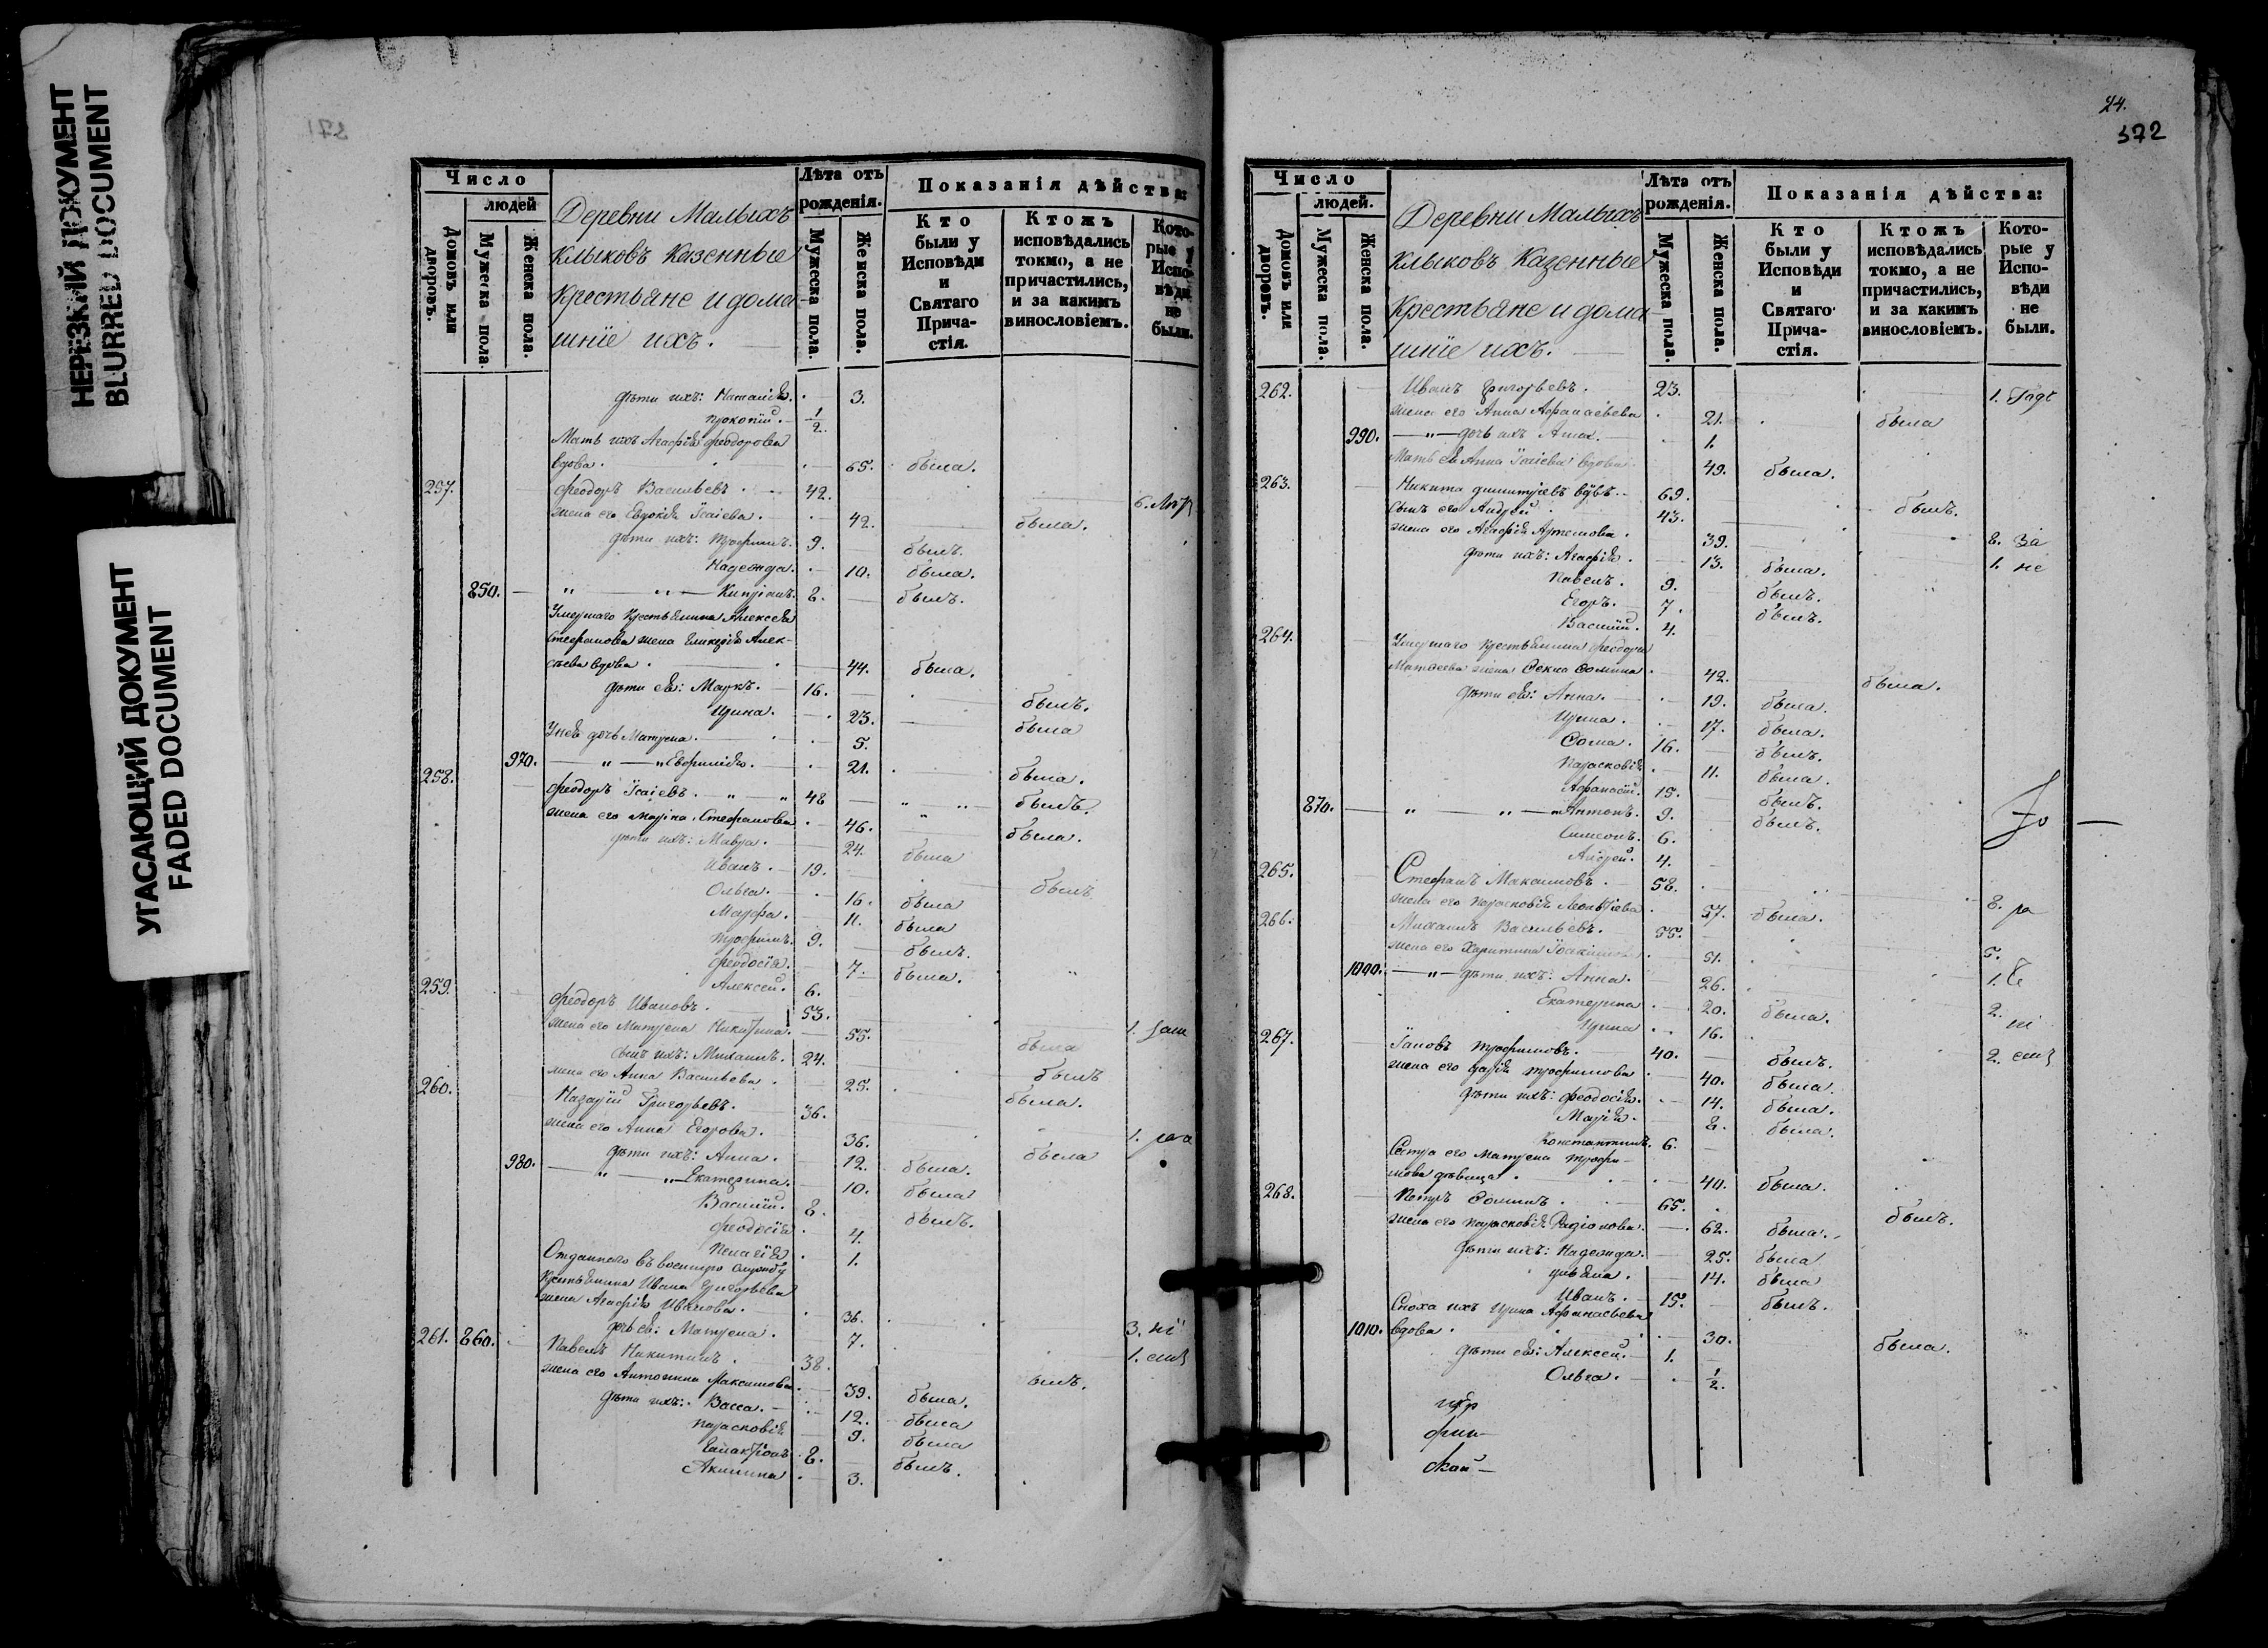 НЕРЕЗКИЙ ДОКУМЕНТ
BLURRED DOCUMENT
УГАСАЮЩИЙ ДОКУМЕНТ
FADED DOCUMENT
371
Число
людей
Домовъ или дворовъ.
Мужеска пола.
Женска пола.
Деревни Малыхъ
Клыковъ Казенные
Крестьяне и дома
шніе ихъ.
Лѣта отъ рожденія.
Мужеска пола.
Женска пола.
Показанія дѣйства:
Кто были у Исповѣди и Святаго Прича-стія.
Ктожъ исповѣдались токмо, а не причастились, и за какимъ винословіемъ.
Кото-рые у Испо-вѣди не были.
дѣти ихъ: Наталія. 3.
Прокопій. 1/2
Мать ихъ Агафія Феодорова
вдова. 65. была.
257. Феодоръ Васильевъ. 42. 6.
жена его Евдокія Ісаіева. 42. была.
дѣти ихъ: Трофимъ. 9. былъ.
Надежда. 10. была.
850. " " Кипріянъ. 8. былъ.
Умершаго Крестьянина Алексѣя
Стефанова жена Гликерія Алек-
сѣева вдова. 44. была.
дѣти ея: Маркъ. 16. былъ.
Ирина. 23. была
У нея дочь Матрена. 5.
970. " " Евфимія. 21. была.
258. Феодоръ Ісаіевъ. " " 48 былъ.
жена его Марина Стефанова 46. была.
дѣти ихъ: Мавра. 24. была
Иванъ. 19. былъ
Ольга. 16. была
Марфа. 11. была
Трофимъ. 9. былъ.
Феодосія. 7. была.
Алексѣй. 6.
259. Феодоръ Ивановъ. 53. 1.
жена его Матрена Никитина. 55. была
сынъ ихъ: Михаилъ. 24. былъ
жена его Анна Васильева. 25. была.
260. Назарій Григорьевъ. 36. 1.
жена его Анна Егорова. 36. была
дѣти ихъ: Анна. 12. была.
980. " " Екатерина. 10. была
Василій. 8. былъ.
Феодосія 4.
Пелагія 1.
Отданнаго въ военную службу
Крестьянина Ивана Григорьева
жена Агафія Иванова. 36. 3.
дочь ея: Матрена. 7.
261. 860. Павелъ Никитинъ. 38. 1.
жена его Антонина Максимова. 39. была.
дѣти ихъ: Васса. 12. была
Парасковія 9. была
Галактіонъ 8. былъ.
Акилина 3.
24.
372
Число
людей.
Домовъ или дворовъ.
Мужеска пола.
Женска пола.
Деревни Малыхъ
Клыковъ Казенные
Крестьяне и дома
шніе ихъ.
Лѣта отъ рожденія.
Мужеска пола.
Женска пола.
Показанія дѣйства:
Кто были у Исповѣди и Святаго Прича-стія.
Ктожъ исповѣдались токмо, а не причастились, и за какимъ винословіемъ.
Кото-рые у Испо-вѣди не были.
262. Иванъ Григорьевъ. 23. 1.
жена его Анна Афанасьева 21. была
990. " дочь ихъ Анна. 1.
Мать ея Анна Ісаіева вдова. 49. была.
263. Никита Димитріевъ вдвъ. 69. былъ.
сынъ его Андрей 43. 8. за
жена его Агафія Артемова. 39. 1. не
дѣти ихъ: Агафія. 13. была.
Павелъ. 9. былъ.
Егоръ. 7. былъ.
Василій. 4.
264. Умершаго Крестьянина Феодора
Матвеева жена Ѳекла Ѳомина 42. была.
дѣти ея: Анна. 19. была.
Ирина. 17. была.
Ѳома. 16. былъ.
Парасковія. 11. была.
Афанасій. 15. былъ.
870. " " Антонъ. 9. былъ.
Симеонъ. 6.
Андрей. 4.
265. Стефанъ Максимовъ. 58. 8. ра
жена его Парасковія Леонтіева 57. была.
266. Михаилъ Васильевъ. 55. 5.
жена его Харитина 51. 1.
1000. " дѣти ихъ: Анна. 26. 2.
Екатерина 20. была.
Ирина 16. 2.
267. Іаковъ Трофимовъ. 40. былъ.
жена его Дарія Трофимова 40. была.
дѣти ихъ: Феодосія. 14. была.
Марія. 8. была.
Константинъ. 6.
Сестра его Матрена Трофи-
мова дѣвица. 40. была.
268. Петръ Ѳоминъ. 65. былъ.
жена его Парасковія Радіонова. 62. была.
дѣти ихъ: Надежда. 25. была
14. была
Иванъ. 15. былъ.
Сноха ихъ Ирина Афанасьева
1010. вдова. 30. была.
дѣти ея: Алексѣй. 1.
Ольга. 1/2.